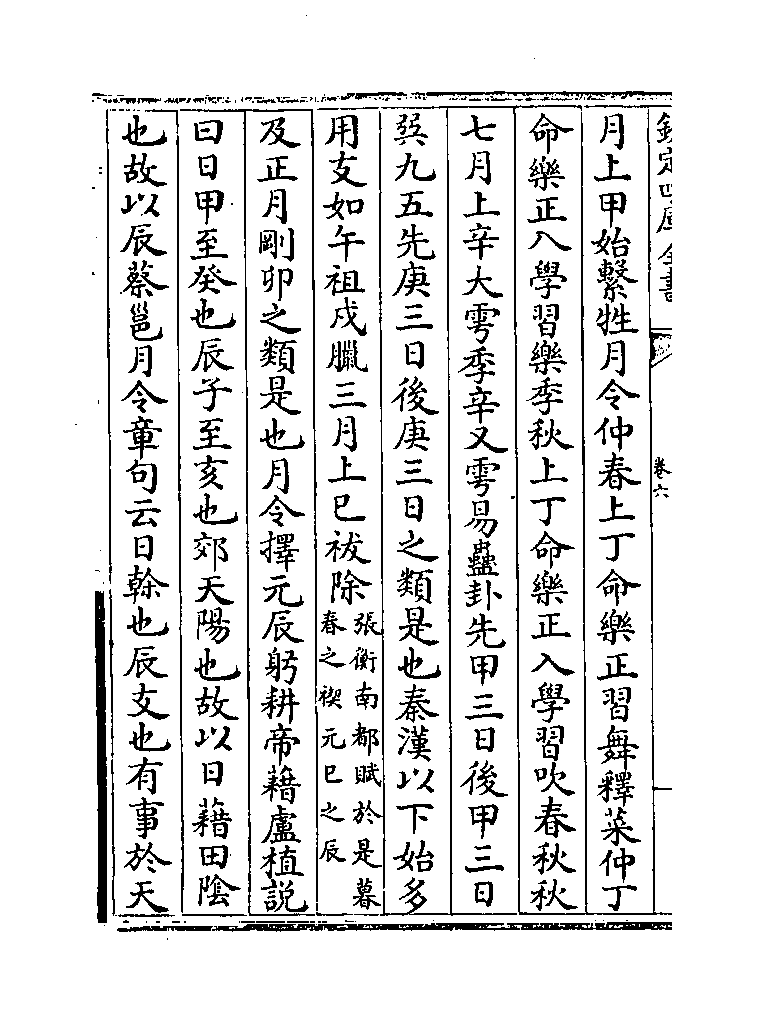 欽定四庫全書
卷六
月上甲始繫牲月令仲春上丁命樂正習舞釋菜仲丁
命樂正入學習樂季秋上丁命樂正入學習吹春秋秋
七月上辛大雩季辛又雩易蠱卦先甲三日後甲三日
巽九五先庚三日後庚三日之類是也秦漢以下始多
用支如午祖戌臘三月上巳祓除張衡南都賦於是暮
春之禊元巳之辰
及正月剛卯之類是也月令擇元辰躬耕帝藉盧植説
曰日甲至癸也辰子至亥也郊天陽也故以日藉田陰
也故以辰蔡邕月令章句云日榦也辰支也有事於天